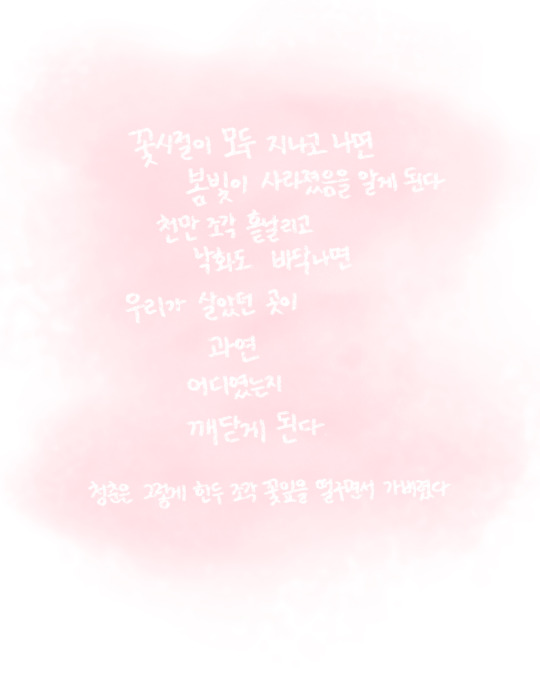 꽃시절이 모두 지나고 나면
봄빛이 사라졌음을 알게 된다
천만 조각 흩날리고
낙화도 바닥나면
우리가 살았던 곳이
과연
어디였는지
깨닫게 된다
청춘은 그렇게 한두 조각 꽃잎을 떨구면서 가버렸다